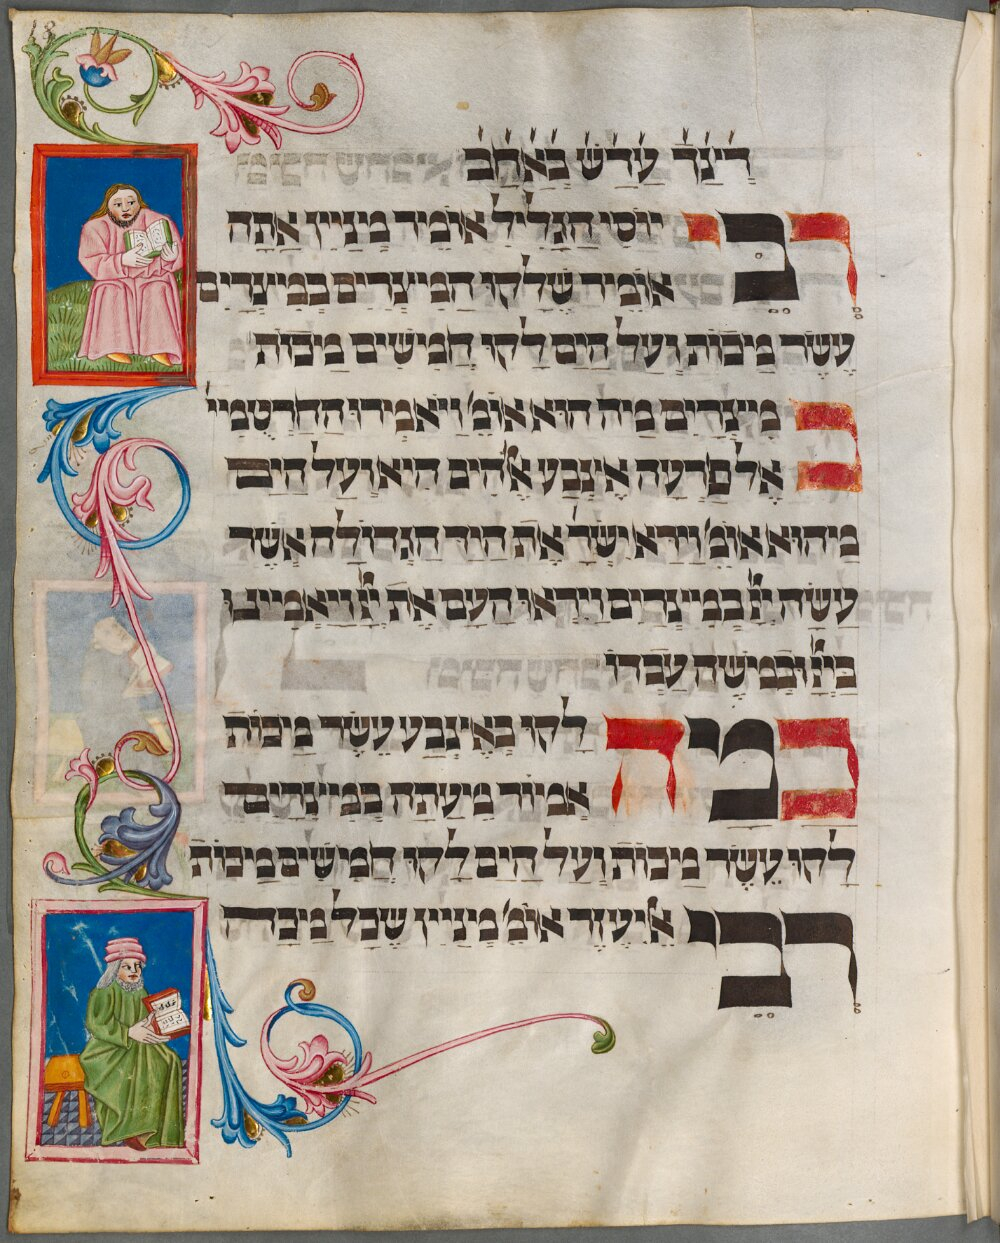 18
דצך עדש באחב
רבי יוסי הגליל אומר מניין אתה
אומר שלקו המיצרים במיצרים
עשר מיכות ועל הים לקו חמישים מיכות
במיצרים מה הוא אומ' ויאמרו החרטמיי'
אל פרעה אצבע אלהים היא ועל הים
מיהוא אומ' וירא ישר' את היד הגדולה אשר
עשה יי במיצרים וייראו העם את יי ויאמיינו
ביי ובמשה עבדו
כמה לקו באיצבע עשר מיכות
אמור מיעתה במיצרים
לקו עשר מיכות ועל הים לקו חמישים מיכות
רבי אליעזר אומ' מניין שכל מיכה